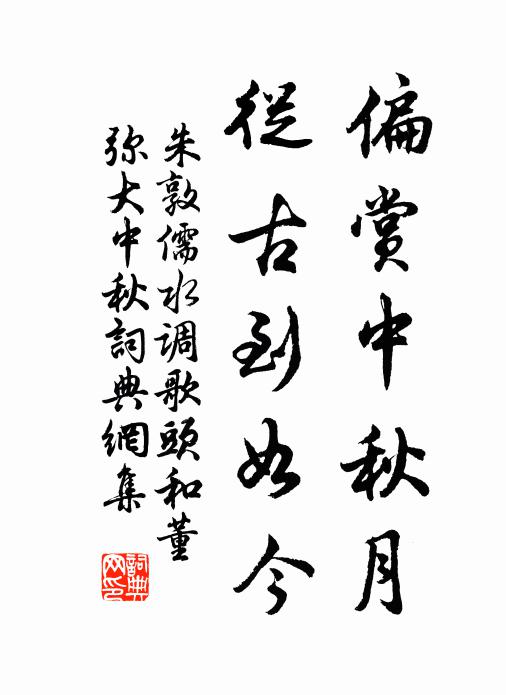 偏賞中秋月
從古到如今
朱敦儒水调歌頭和董
弥大中秋詞典網集
詞典
网印